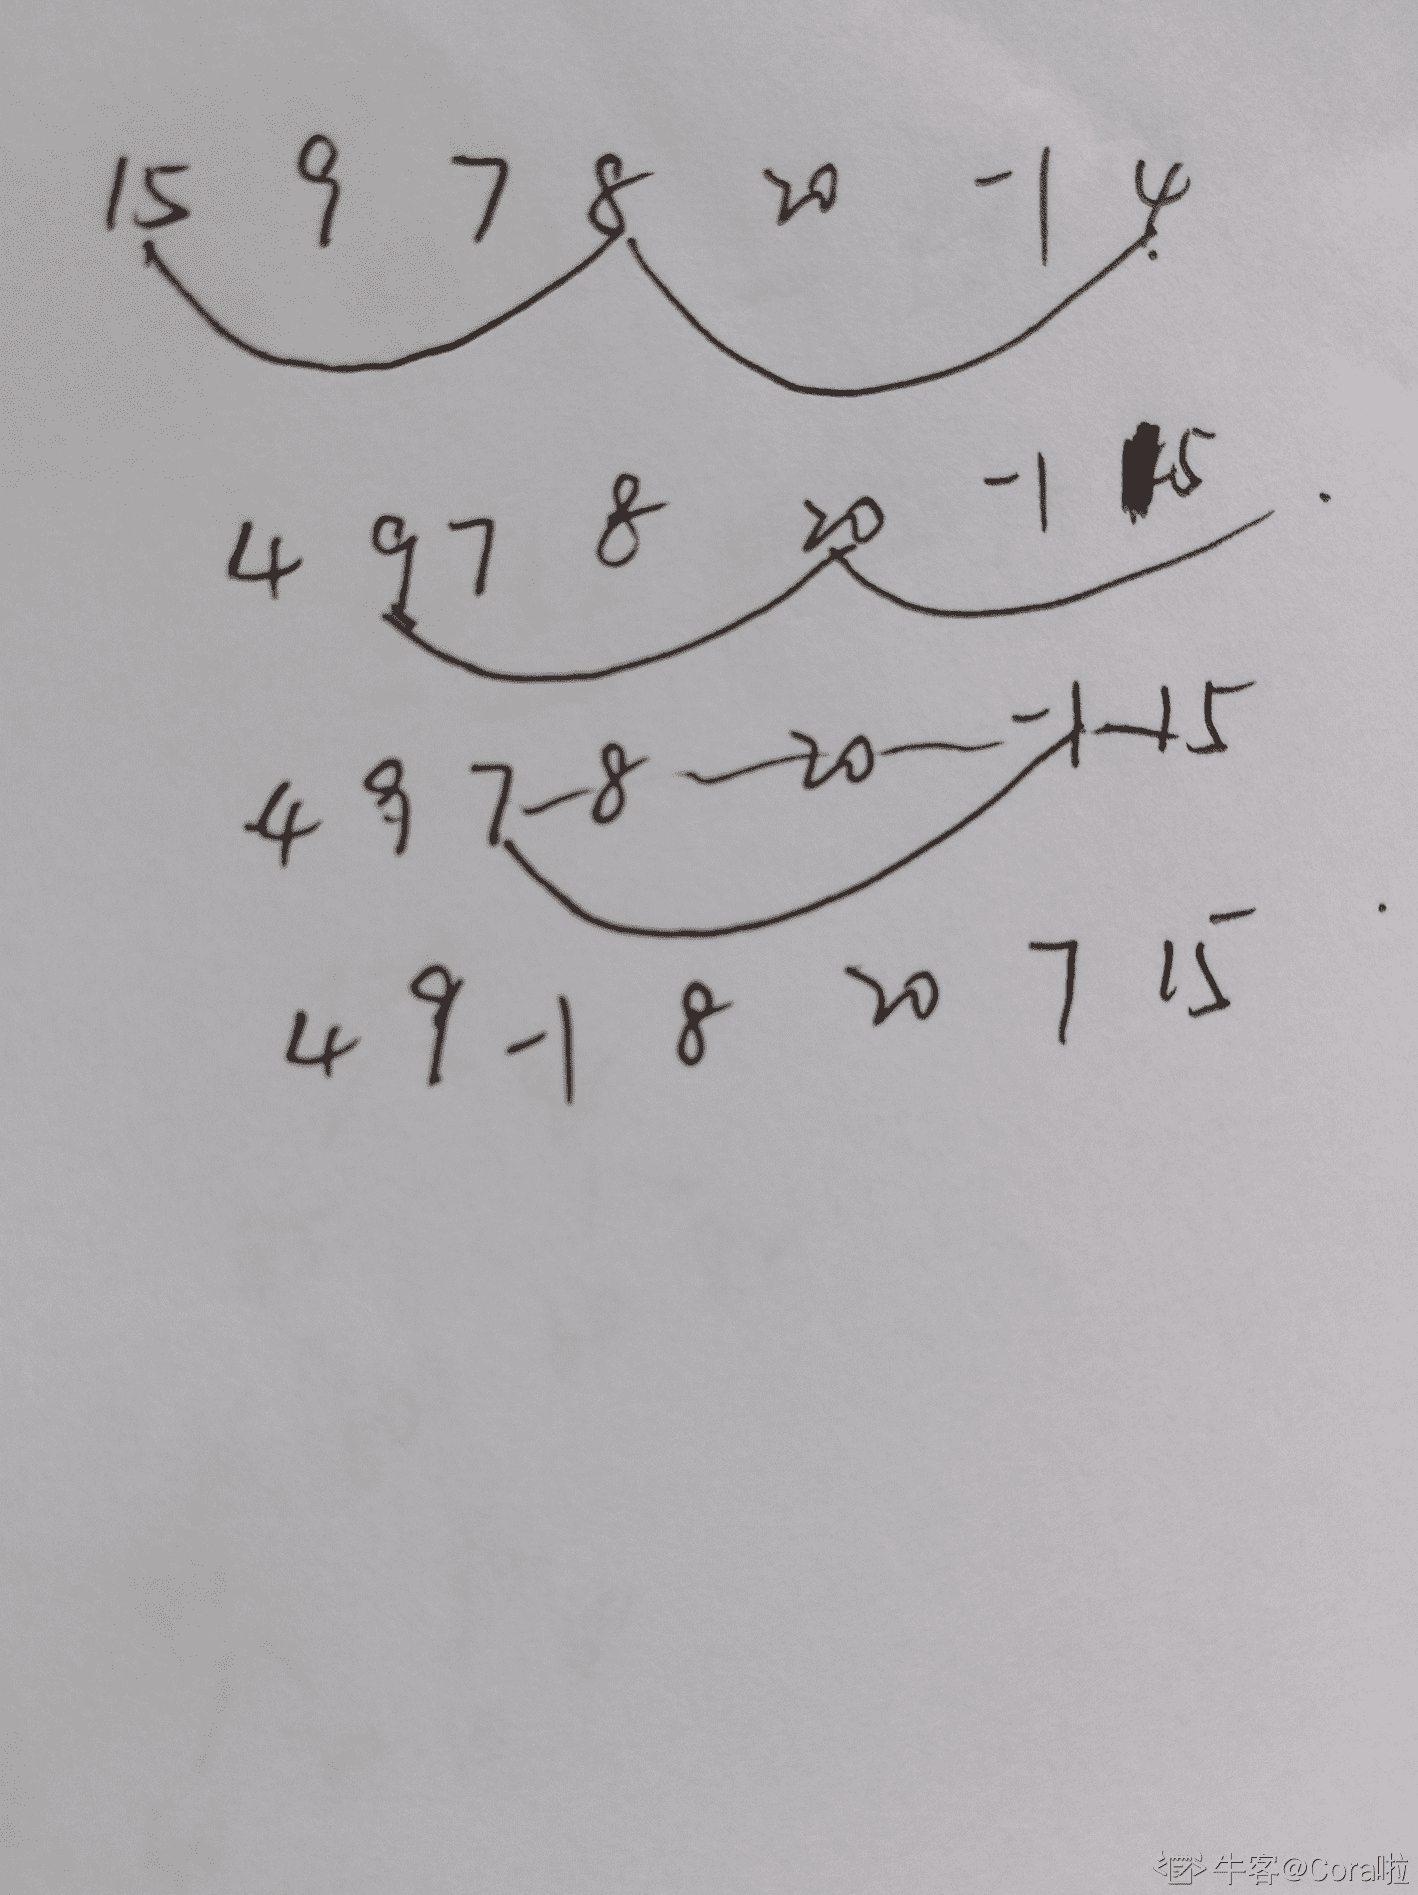 15 9 7 8 20 -1 4
4 9 7 8 20 -1 15
4 9 7 8 20 -1 15
4 9 -1 8 20 7 15
牛客@Cora啦